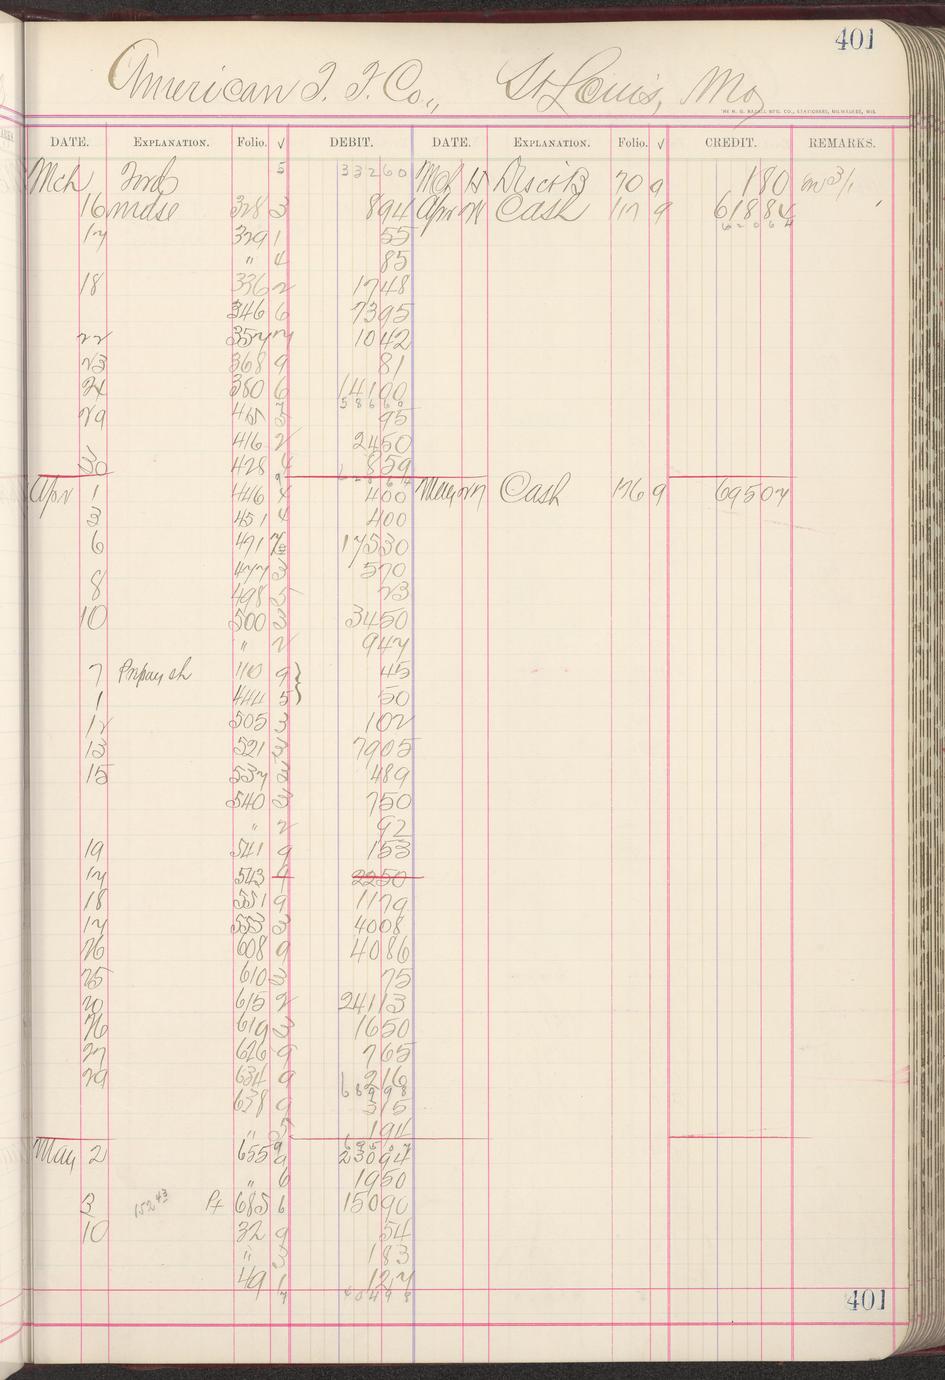 401
American T. F. Co., St Louis, Mo
DATE. EXPLANATION. Folio. √ DEBIT. DATE. EXPLANATION. Folio. √ CREDIT. REMARKS.
Mch Ford 5 33260 Mch 15 Disct B 70 9 180 3/1
16 mdse 328 3 894 Apr 21 Cash 117 9 61884
17 329 1 55 62064
" 4 85
18 336 2 1748
346 6 7395
22 357 1042
23 368 9 81
24 380 6 14100
58660
29 415 5 95
416 2 2450
30 428 4 859
Apr 1 446 4 400 May 27 Cash 176 9 69507
3 451 4 400
6 471 17530
8 477 3 570
498 5 23
10 500 3 3450
" 2 947
7 Prepay ch 110 9 } 45
1 444 5 50
12 505 3 102
13 521 3 7905
15 537 3 489
540 3 750
" 2 92
19 541 9 153
17 543 2250
18 551 9 1179
17 553 3 4008
26 608 9 4086
25 610 3 75
20 615 2 24113
26 619 3 1650
27 626 9 765
29 634 9 216
68998
638 9 315
" 5 194
69507
May 2 655 9 23094
" 6 1950
3 152 43 Pt 685 6 15090
10 32 9 54
" 3 183
49 1 127
401